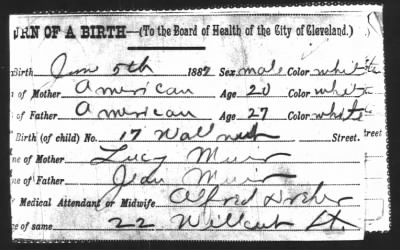 URN OF A BIRTH—(To the Board of Health of the City of Cleveland.)
Birth June 5th 1887 Sex male Color white
n of Mother American Age 20 Color white
n of Father American Age 27 Color white
Birth (of child) No. 17 Wallnut Street.
ne of Mother Lucy Muir
ne of Father Jean Muir
Medical Attendant or Midwife Alfred
ce of same 22 Willcut St.
treet